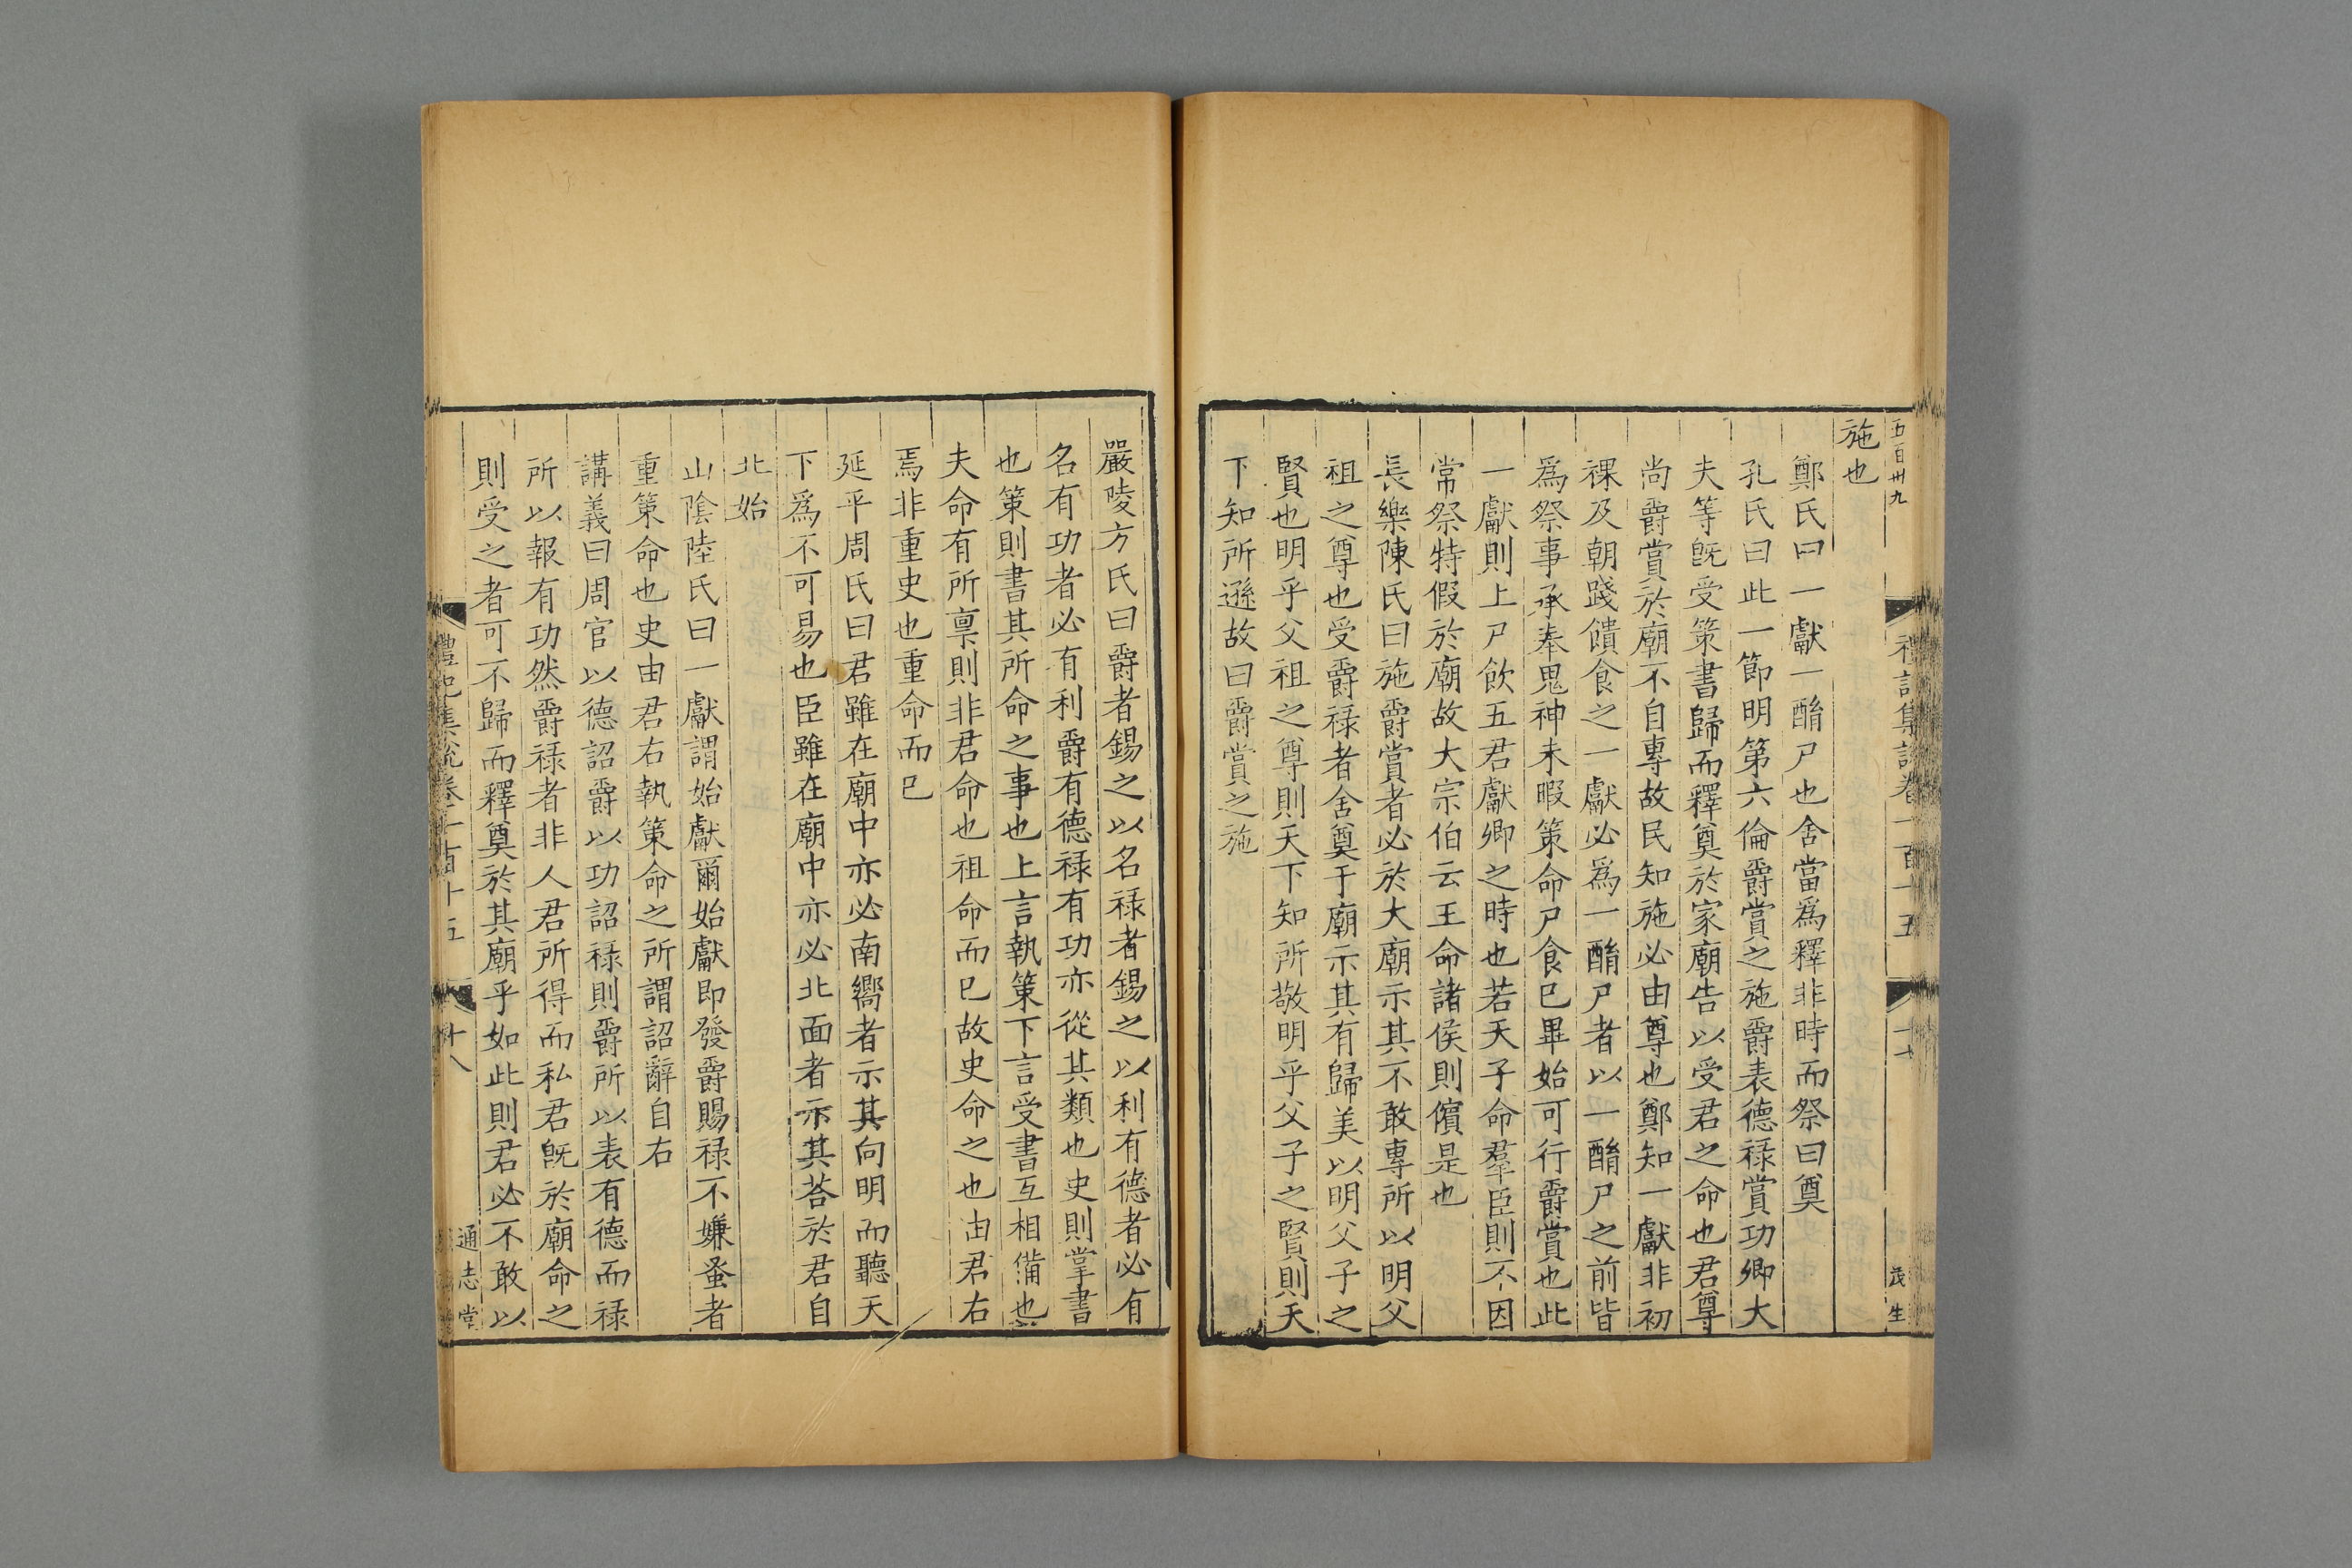 五百卅九
禮記集說卷一百十五
十七
茂生
施也
鄭氏曰一獻一酳尸也舍當爲釋非時而祭曰奠
孔氏曰此一節明第六倫爵賞之施爵表德禄賞功卿大
夫等旣受策書歸而釋奠於家廟告以受君之命也君尊
尚爵賞於廟不自專故民知施必由尊也鄭知一獻非初
祼及朝踐饋食之一獻必爲一酳尸者以一酳尸之前皆
爲祭事承奉鬼神未暇策命尸食巳畢始可行爵賞也此
一獻則上尸飲五君獻卿之時也若天子命羣臣則不因
常祭特假於廟故大宗伯云王命諸侯則儐是也
長樂陳氏曰施爵賞者必於大廟示其不敢專所以明父
祖之尊也受爵禄者舍奠于廟示其有歸美以明父子之
賢也明乎父祖之尊則天下知所敬明乎父子之賢則天
下知所遜故曰爵賞之施
嚴陵方氏曰爵者錫之以名禄者錫之以利有德者必有
名有功者必有利爵有德禄有功亦從其類也史則掌書
也策則書其所命之事也上言執策下言受書互相備也
夫命有所稟則非君命也祖命而巳故史命之也由君右
焉非重史也重命而巳
延平周氏曰君雖在廟中亦必南嚮者示其向明而聽天
下爲不可易也臣雖在廟中亦必北面者示其荅於君自
北始
山陰陸氏曰一獻謂始獻爾始獻即發爵賜禄不嫌蚤者
重策命也史由君右執策命之所謂詔辭自右
講義曰周官以德詔爵以功詔禄則爵所以表有德而禄
所以報有功然爵禄者非人君所得而私君旣於廟命之
則受之者可不歸而釋奠於其廟乎如此則君必不敢以
禮記集說卷一百十五
十八
通志堂